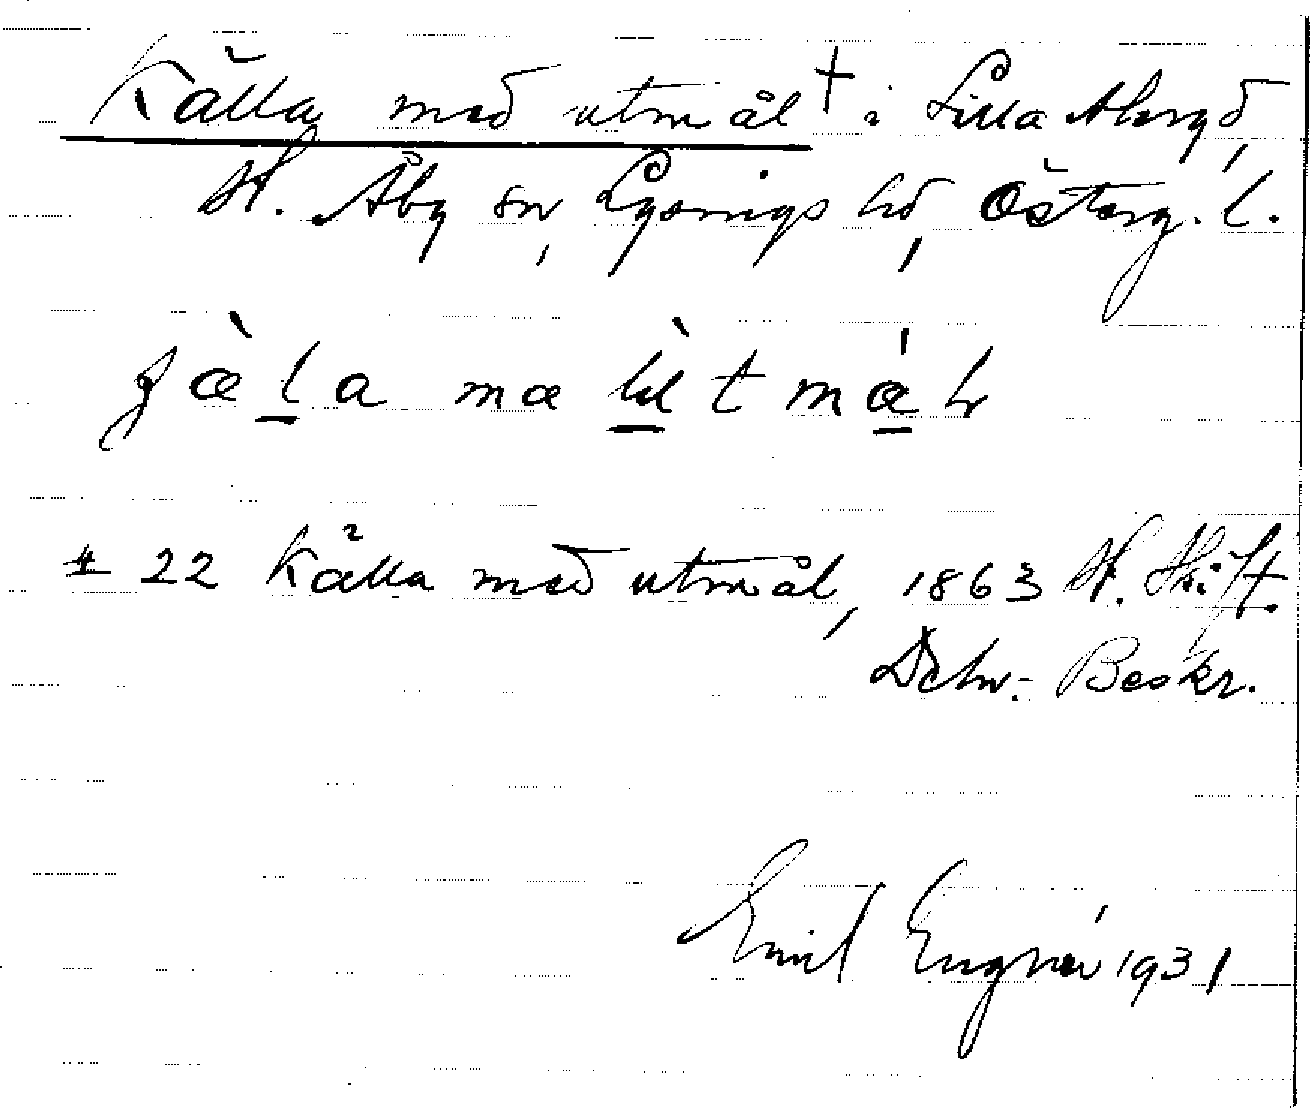 Källa med utmål † i Lilla Åbergd,
St. Åby sn, Lysings hd, Österg. l.
22 Källa med utmål, 1863 St. Skift.
Beskr.
Emil Engnér 1931